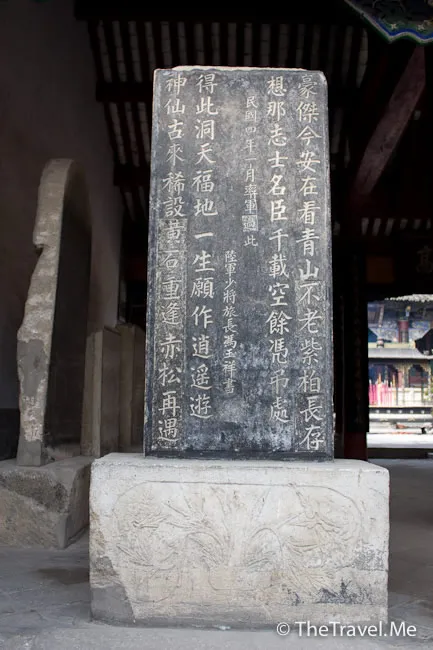 豪傑今安在看青山不老紫柏長存
想那志士名臣千載空餘憑弔處
民國四年一月率軍過此
陸軍少將旅長馮玉祥書
得此洞天福地一生願作逍遙遊
神仙古來稀設黃石重逢赤松再遇
© TheTravel.Me